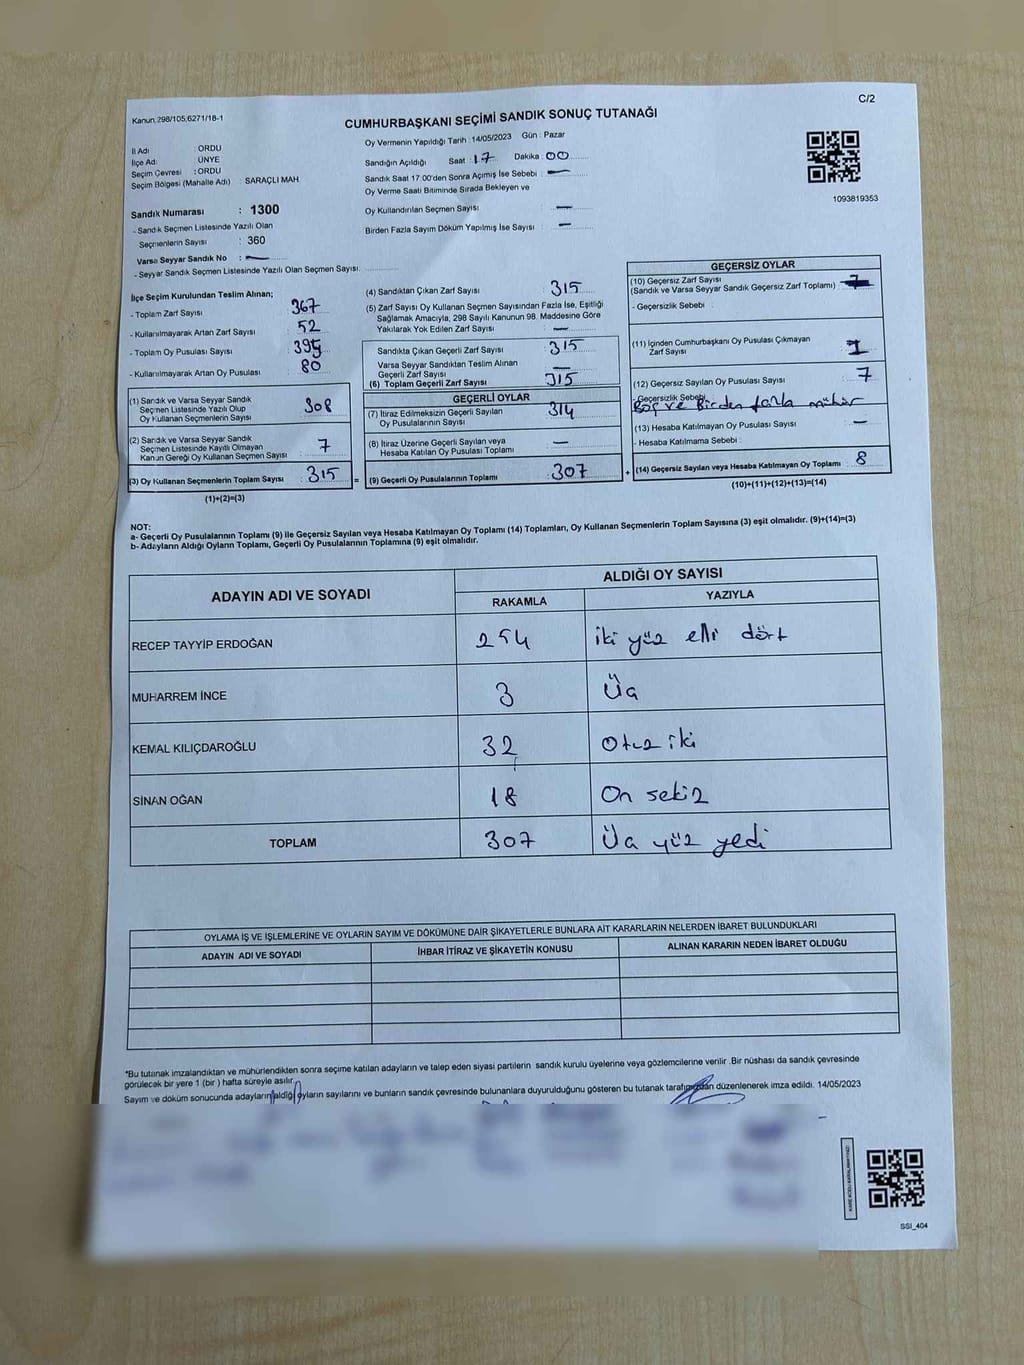 C/2
Kanun, 298/105,6271/18-1
CUMHURBAŞKANI SEÇİMİ SANDIK SONUÇ TUTANAĞI
İl Adı : ORDU
İlçe Adı : ÜNYE
Seçim Çevresi : ORDU
Seçim Bölgesi (Mahalle Adı) : SARAÇLI MAH.
Sandık Numarası : 1300
- Sandık Seçmen Listesinde Yazılı Olan
Seçmenlerin Sayısı : 360
Varsa Seyyar Sandık No : —
- Seyyar Sandık Seçmen Listesinde Yazılı Olan Seçmen Sayısı:
Oy Vermenin Yapıldığı Tarih : 14/05/2023 Gün : Pazar
Sandığın Açıldığı Saat : 17 Dakika : 00
Sandık Saat 17.00'den Sonra Açımış İse Sebebi : —
Oy Verme Saati Bitiminde Sırada Bekleyen ve
Oy Kullandırılan Seçmen Sayısı : —
Birden Fazla Sayım Döküm Yapılmış İse Sayısı : —
1093819353
İlçe Seçim Kurulundan Teslim Alınan;
- Toplam Zarf Sayısı : 367
- Kullanılmayarak Artan Zarf Sayısı : 52
- Toplam Oy Pusulası Sayısı : 395
- Kullanılmayarak Artan Oy Pusulası : 80
(1) Sandık ve Varsa Seyyar Sandık
Seçmen Listesinde Yazılı Olup
Oy Kullanan Seçmenlerin Sayısı : 308
(2) Sandık ve Varsa Seyyar Sandık
Seçmen Listesinde Kayıtlı Olmayan
Kanun Gereği Oy Kullanan Seçmen Sayısı : 7
(3) Oy Kullanan Seçmenlerin Toplam Sayısı : 315 =
(1)+(2)=(3)
(4) Sandıktan Çıkan Zarf Sayısı : 315
(5) Zarf Sayısı Oy Kullanan Seçmen Sayısından Fazla İse, Eşitliği
Sağlamak Amacıyla, 298 Sayılı Kanunun 98. Maddesine Göre
Yakılarak Yok Edilen Zarf Sayısı : —
Sandıkta Çıkan Geçerli Zarf Sayısı : 315
Varsa Seyyar Sandıktan Teslim Alınan
Geçerli Zarf Sayısı : —
(6) Toplam Geçerli Zarf Sayısı : 315
GEÇERLİ OYLAR
(7) İtiraz Edilmeksizin Geçerli Sayılan
Oy Pusulalarının Sayısı : 314
(8) İtiraz Üzerine Geçerli Sayılan veya
Hesaba Katılan Oy Pusulası Toplamı : —
(9) Geçerli Oy Pusulalarının Toplamı : 307 +
GEÇERSİZ OYLAR
(10) Geçersiz Zarf Sayısı
(Sandık ve Varsa Seyyar Sandık Geçersiz Zarf Toplamı) :
- Geçersizlik Sebebi :
(11) İçinden Cumhurbaşkanı Oy Pusulası Çıkmayan
Zarf Sayısı : 1
(12) Geçersiz Sayılan Oy Pusulası Sayısı : 7
- Geçersizlik Sebebi
Boş ve Birden fazla mühür
(13) Hesaba Katılmayan Oy Pusulası Sayısı : —
- Hesaba Katılmama Sebebi :
(14) Geçersiz Sayılan veya Hesaba Katılmayan Oy Toplamı : 8
(10)+(11)+(12)+(13)=(14)
NOT:
a- Geçerli Oy Pusulalarının Toplamı (9) ile Geçersiz Sayılan veya Hesaba Katılmayan Oy Toplamı (14) Toplamları, Oy Kullanan Seçmenlerin Toplam Sayısına (3) eşit olmalıdır. (9)+(14)=(3)
b- Adayların Aldığı Oyların Toplamı, Geçerli Oy Pusulalarının Toplamına (9) eşit olmalıdır.
ADAYIN ADI VE SOYADI
ALDIĞI OY SAYISI
RAKAMLA YAZIYLA
RECEP TAYYİP ERDOĞAN 254 iki yüz elli dört
MUHARREM İNCE 3 Üç
KEMAL KILIÇDAROĞLU 32 Otuz iki
SİNAN OĞAN 18 On sekiz
TOPLAM 307 Üç yüz yedi
OYLAMA İŞ VE İŞLEMLERİNE VE OYLARIN SAYIM VE DÖKÜMÜNE DAİR ŞİKAYETLERLE BUNLARA AİT KARARLARIN NELERDEN İBARET BULUNDUKLARI
ADAYIN ADI VE SOYADI İHBAR İTİRAZ VE ŞİKAYETİN KONUSU ALINAN KARARIN NEDEN İBARET OLDUĞU
*Bu tutanak imzalandıktan ve mühürlendikten sonra seçime katılan adayların ve talep eden siyasi partilerin sandık kurulu üyelerine veya gözlemcilerine verilir .Bir nüshası da sandık çevresinde
görülecek bir yere 1 (bir ) hafta süreyle asılır.
Sayım ve döküm sonucunda adayların aldığı oyların sayılarını ve bunların sandık çevresinde bulunanlara duyurulduğunu gösteren bu tutanak tarafımızdan düzenlenerek imza edildi. 14/05/2023
SSI_404